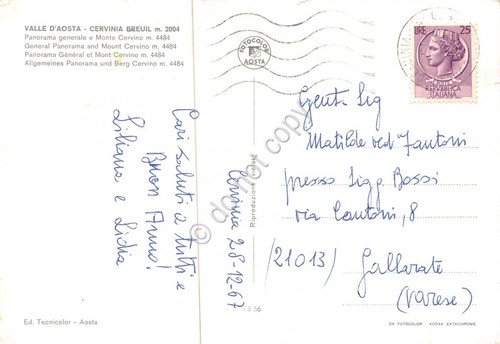 VALLE D'AOSTA - CERVINIA BREUIL m. 2004
Panorama generale e Monte Cervino m. 4484
General Panorama and Mount Cervino m. 4484
Panorama Général et Mont Cervino m. 4484
Allgemeines Panorama und Berg Cervino m. 4484
Cari saluti a tutti e
Buon Anno!
Liliana e Lidia
Cervinia 28-12-67
FOTOCOLOR
AOSTA
LIRE 25
REPVBBLICA
ITALIANA
Gent. Sig
Matilde ved. Fantoni
presso Sigg. Bossi
via Cantoni, 8
(21013) Gallarate
(Varese)
do not copy
Riproduzione
Ed. Tecnicolor - Aosta
DA FOTOCOLOR KODAK EKTACHROME